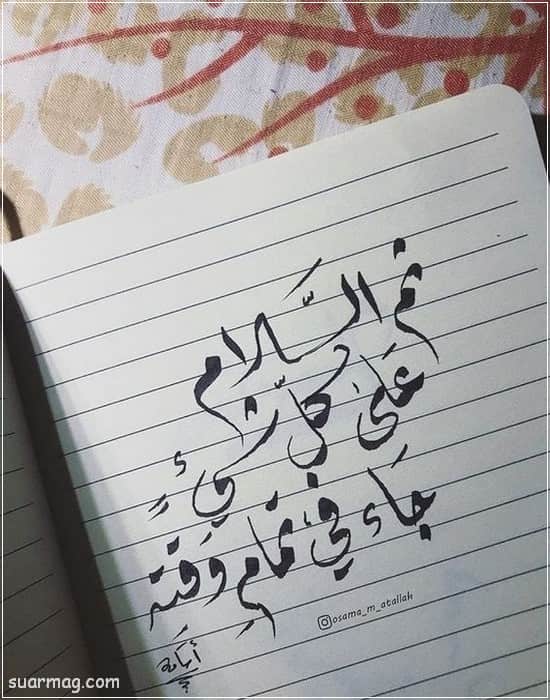 ثم السَّلام
عَلى كلِّ شيءٍ
جَاء في تمامِ وَقته
osama_m_atallah
أسامة
suarmag.com